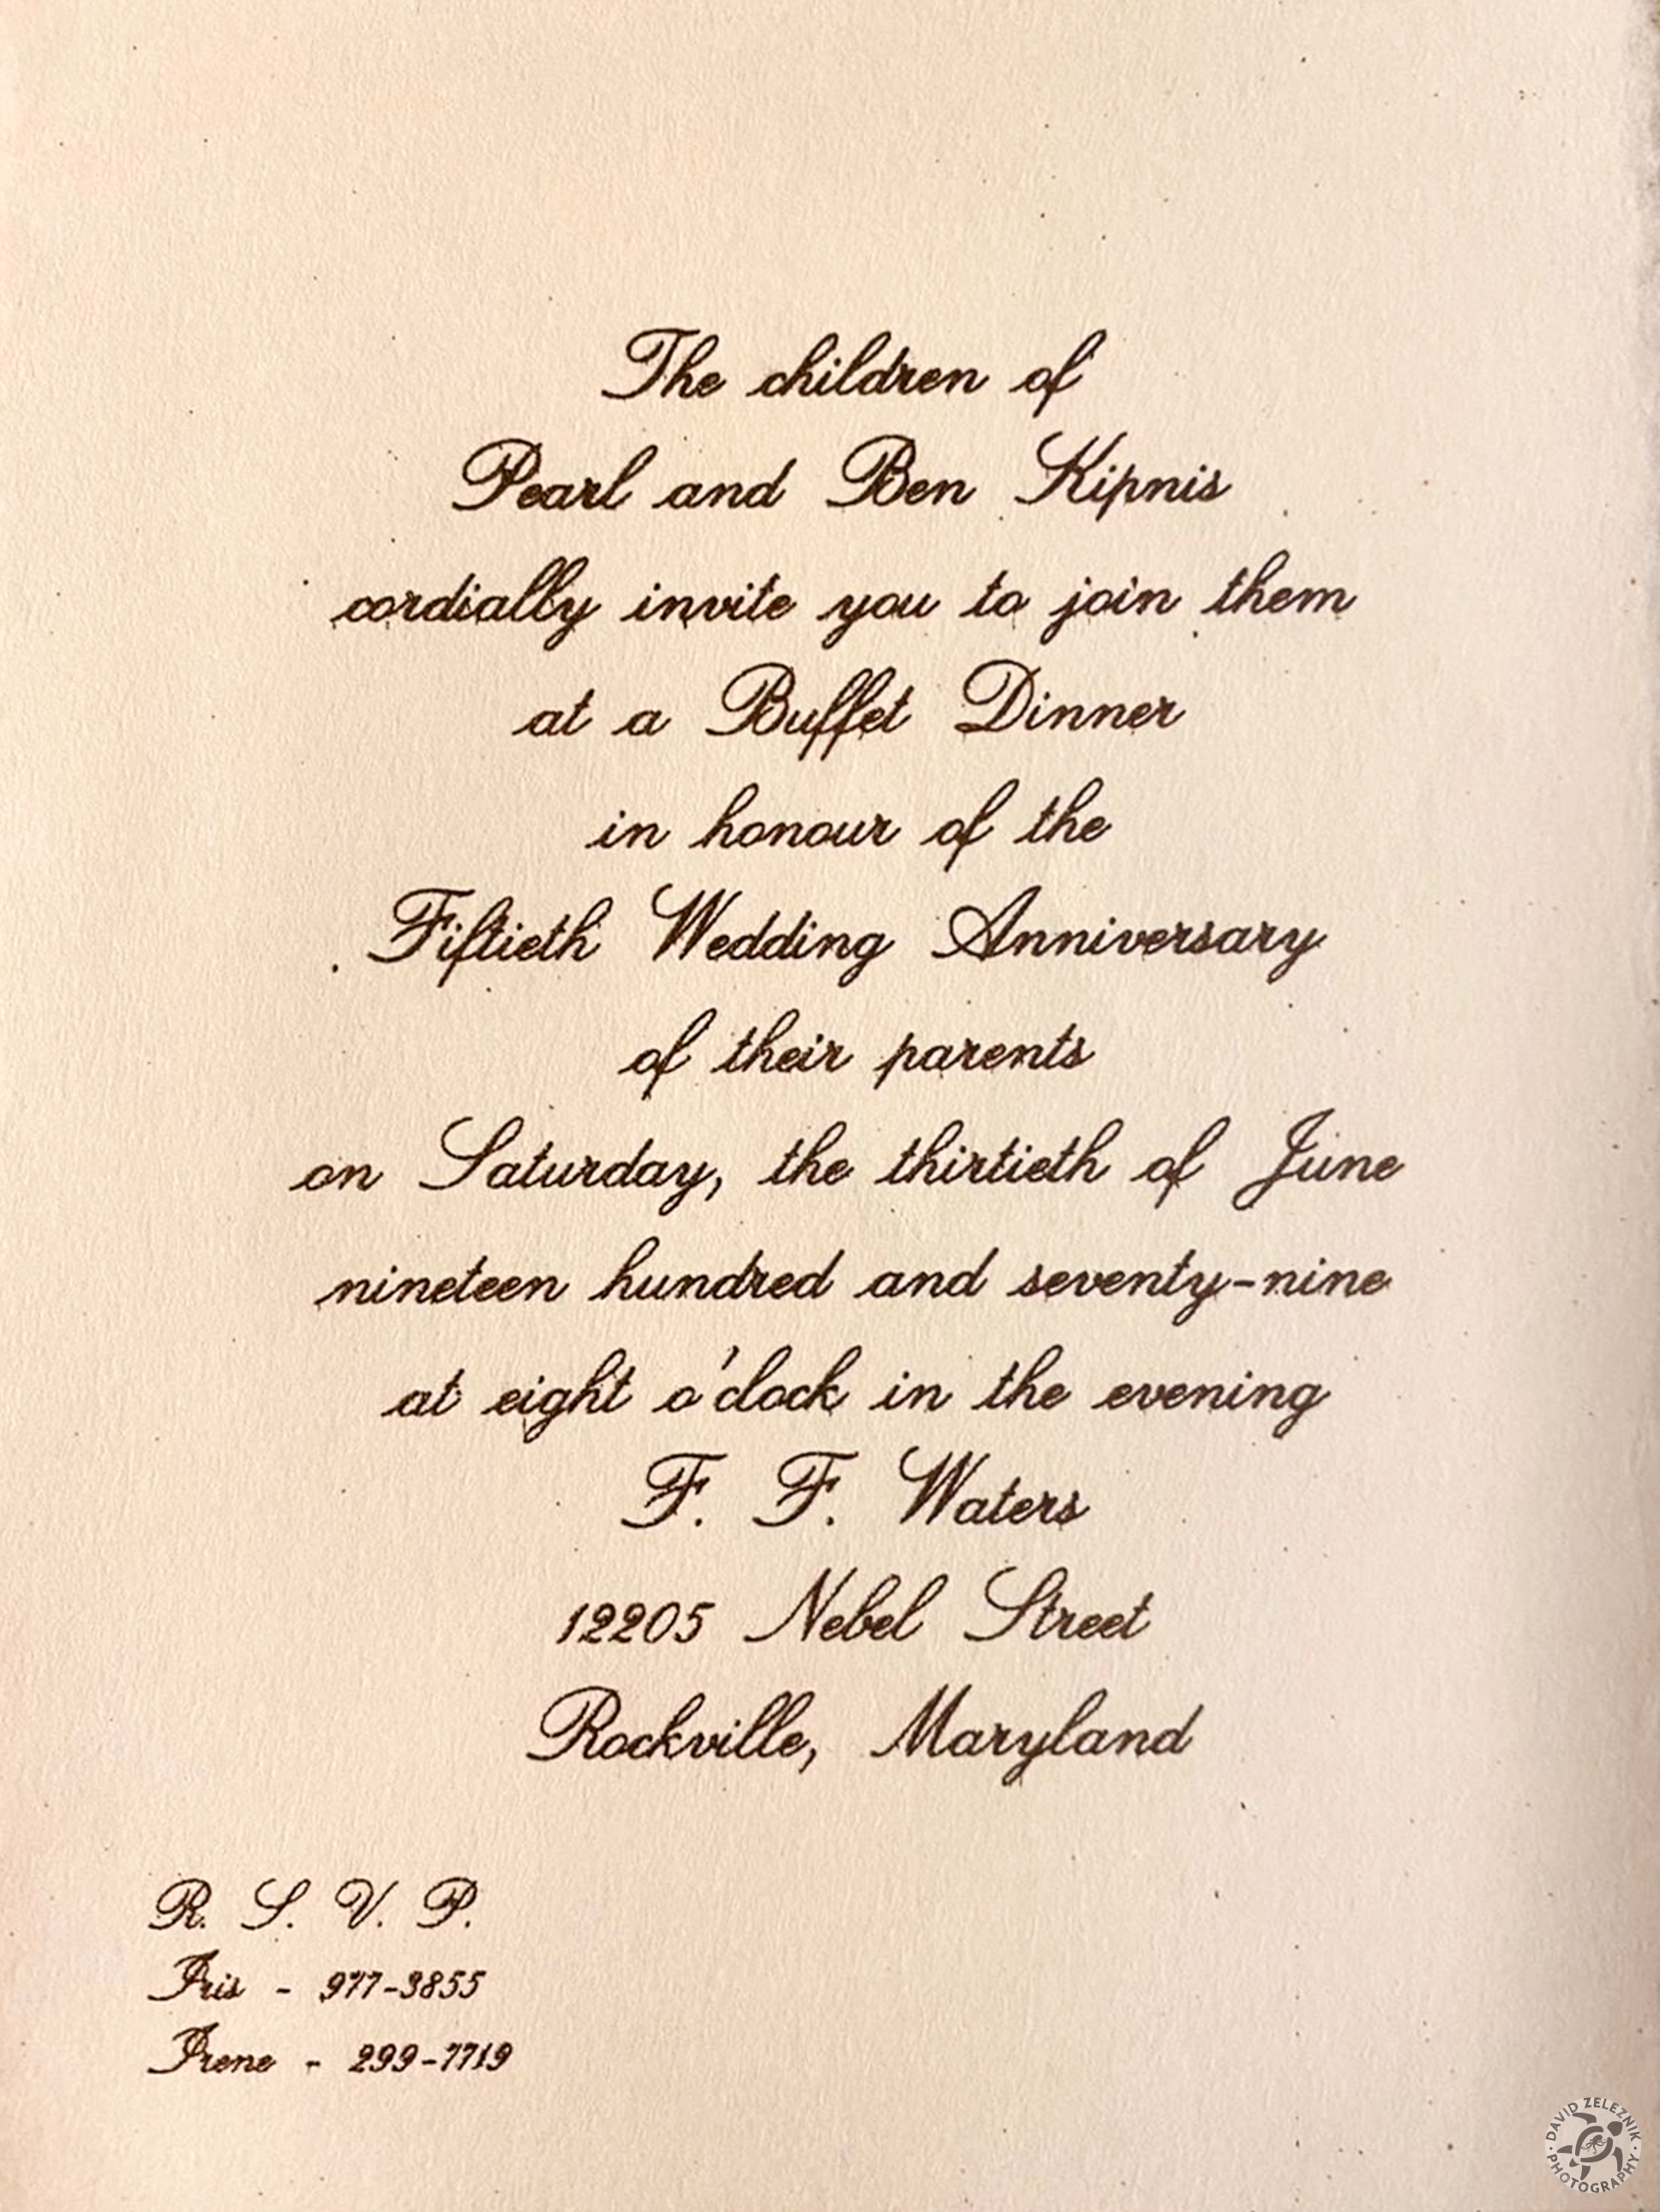 The children of
Pearl and Ben Kipnis
cordially invite you to join them
at a Buffet Dinner
in honour of the
Fiftieth Wedding Anniversary
of their parents
on Saturday, the thirtieth of June
nineteen hundred and seventy-nine
at eight o'clock in the evening
F. F. Waters
12205 Nebel Street
Rockville, Maryland
R. S. V. P.
Iris - 977-3855
Irene - 299-7719
DAVID ZELEZNIK
PHOTOGRAPHY